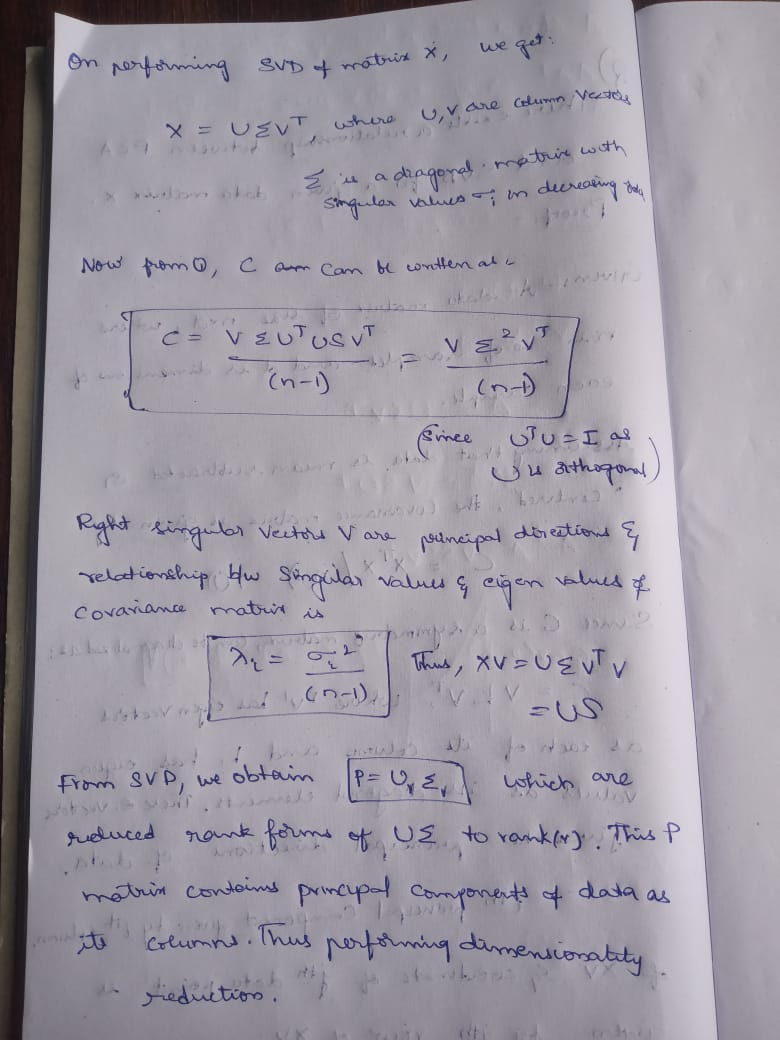 On performing SVD of matrix X, we get:
X = UΣVᵀ, where U,V are column vectors
Σ is a diagonal matrix with
singular values σᵢ in decreasing
Now from ①, C can be written as
C = VΣUᵀUSVᵀ / (n-1) = VΣ²Vᵀ / (n-1)
(Since UᵀU = I as
U is orthogonal)
Right singular vectors V are principal directions &
relationship b/w Singular values & eigen values of
Covariance matrix is
λᵢ = σᵢ² / (n-1) Thus, XV = UΣVᵀV
= US
From SVD, we obtain P = UᵣΣᵣ which are
reduced rank forms of UΣ to rank(r). This P
matrix contains principal components of data as
its columns. Thus performing dimensionality
reduction.